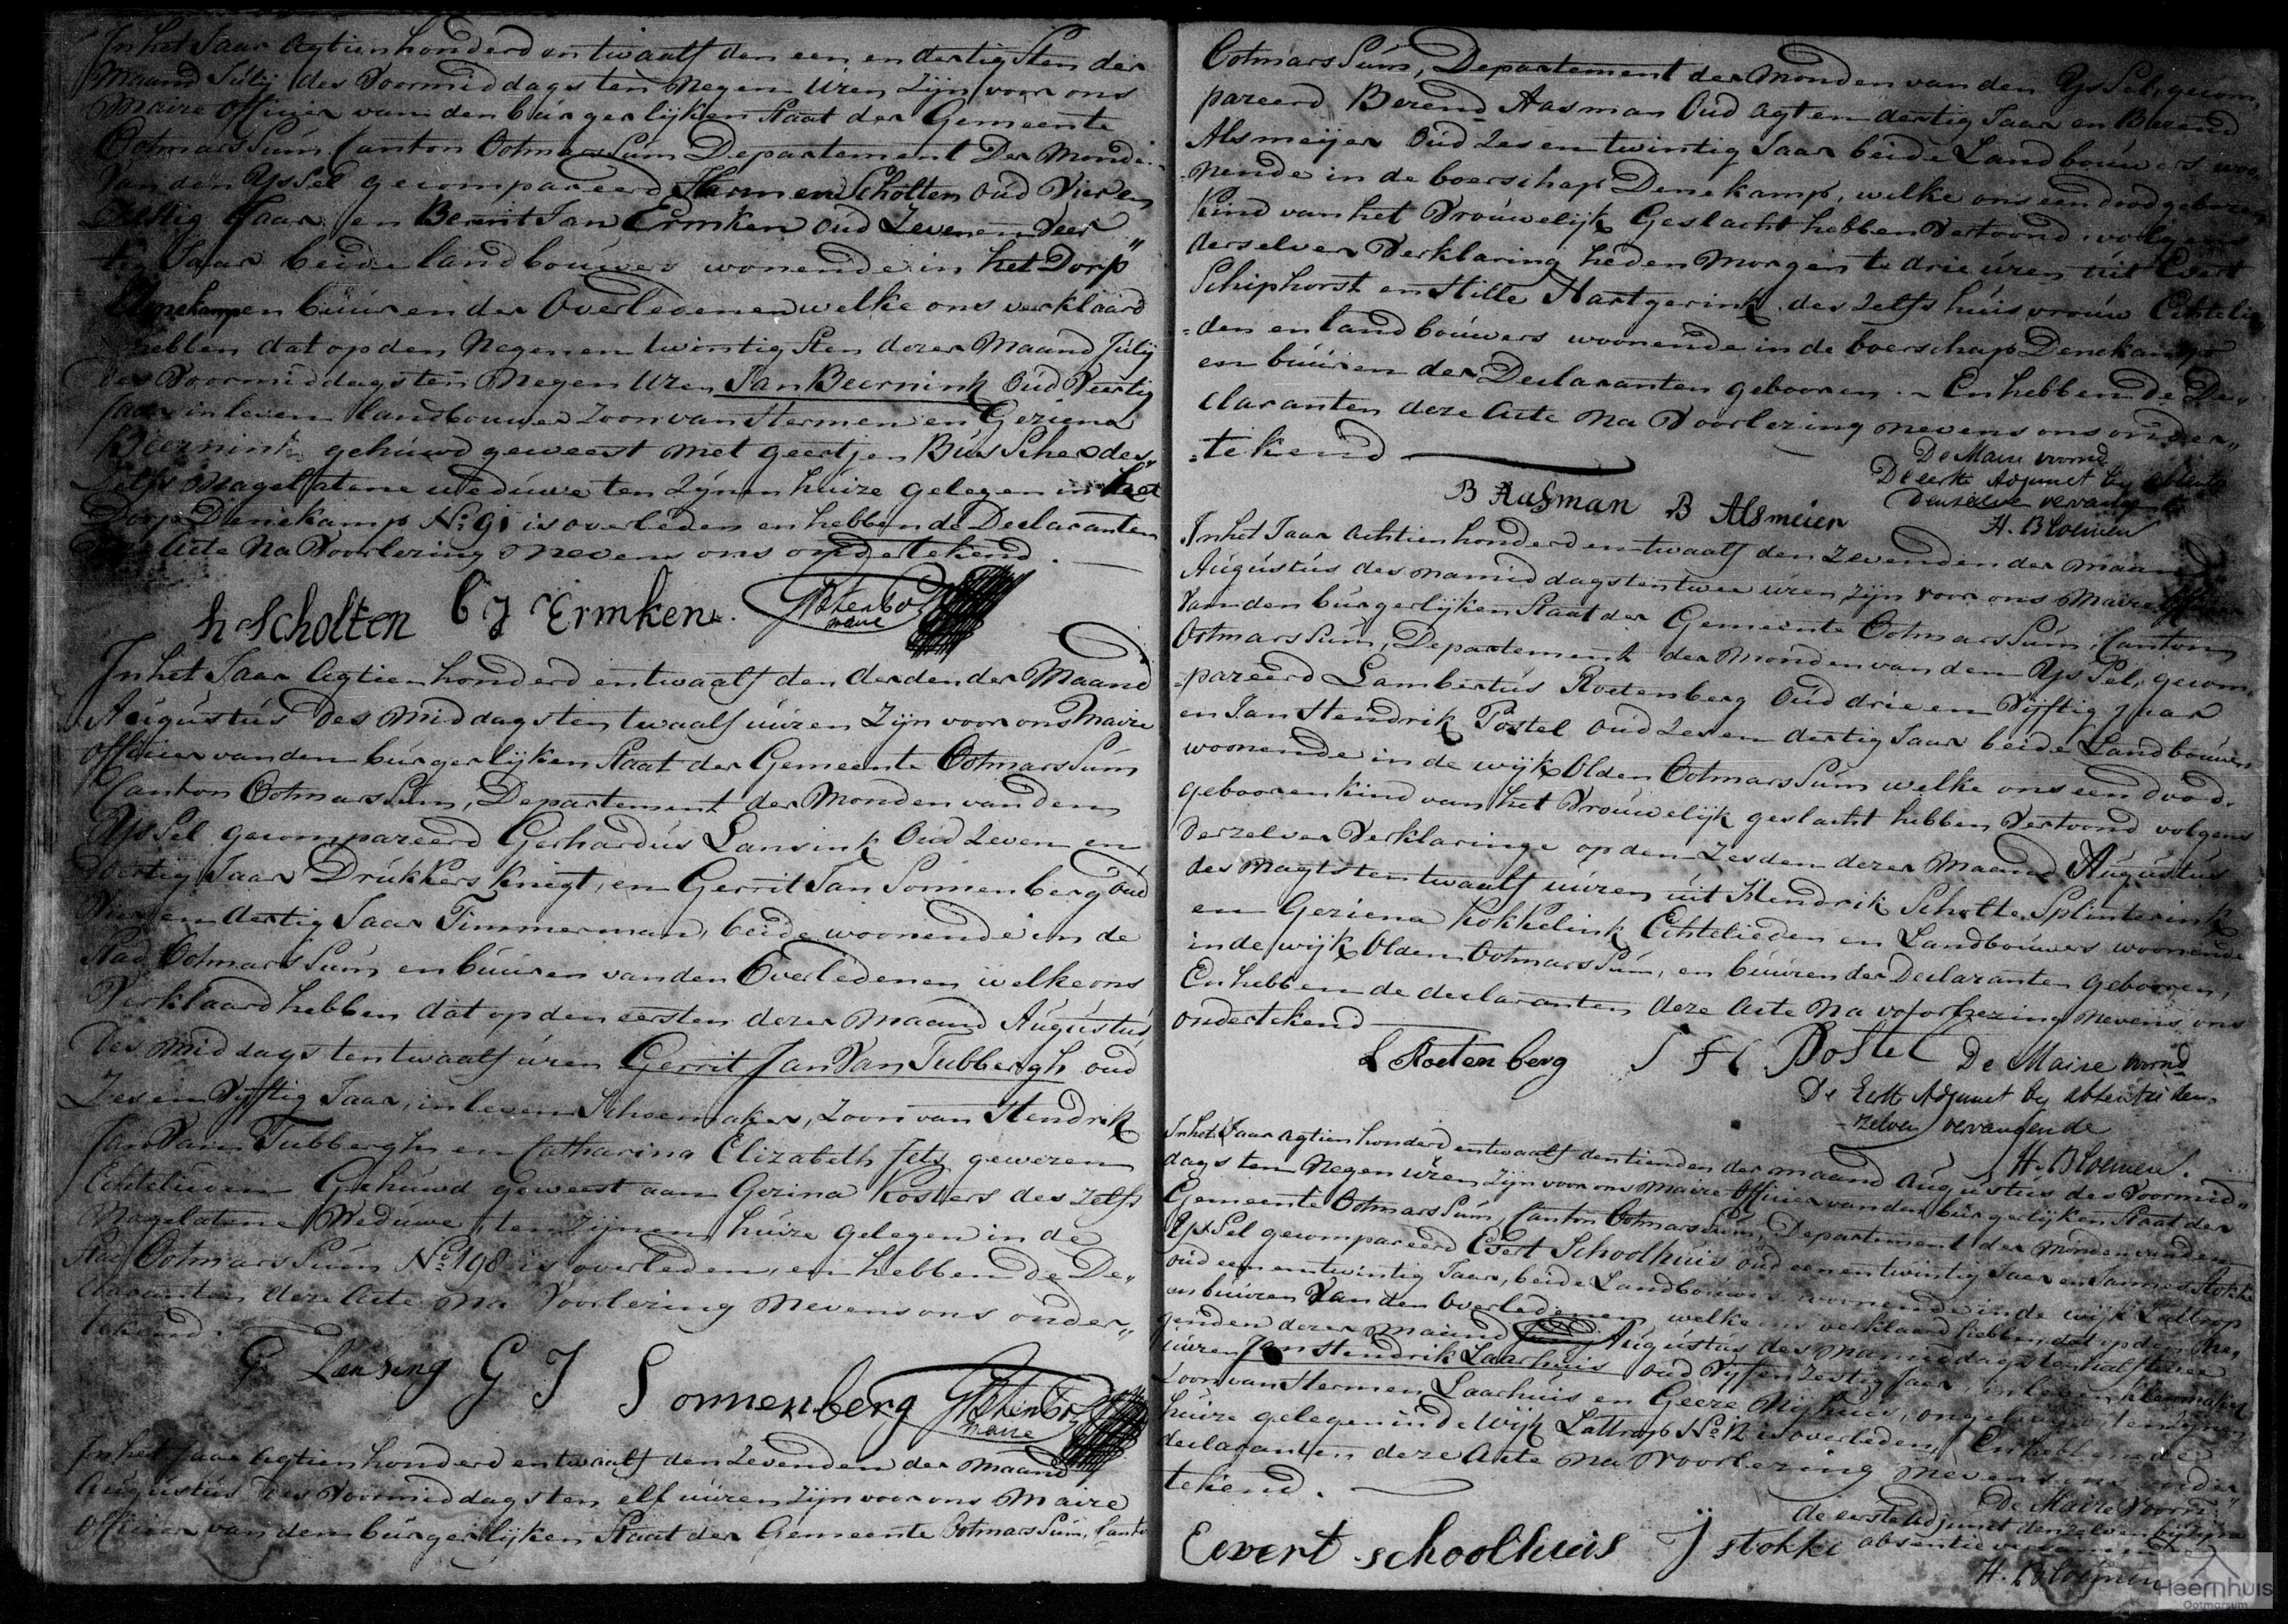 In het Jaar Agtienhonderd en twaalf den een en dertigsten der
Maand Julij des Voormiddags ten Negen Uren zijn voor ons
Maire Officier van den burgerlijken Staat der Gemeente
OotmarsSum Canton OotmarsSum Departement Der Monde
van den YsSel gecompareerd Harmen Scholten Oud Vier en
Jaar en Berent Jan Ermken Oud Zeven en Veer
tig Jaar beide landbouwers wonende in het Dorp
Denekamp en buuren der Overledenen welke ons verklaard
hebben dat op den Negenentwintigsten dezer Maand Julij
des Voormiddags ten Negen Uren Jan Beernink Oud Veertig
Jaar in leven landbouwer Zoon van Hermen en Geziena
Beernink gehuwd geweest met geertjen BusScher des
Zelfs Nagelatene Weduwe ten Zijnen huize gelegen in het
Dorp Denekamp No. 91 is overleden en hebben de Declaranten
deze Acte Na Voorlezing nevens ons ondertekend
h Scholten b J Ermken
maire
In het Jaar Agtienhonderd en twaalf den derden der Maand
Augustus des Middags ten twaalf uuren Zijn voor ons Maire
officier van den burgerlijken Staat der Gemeente OotmarsSum
Canton OotmarsSum, Departement der Monden van den
YsSel gecompareerd Gerhardus Lansink Oud Zeven en
dertig Jaar Drukkers Knegt, en Gerrit Jan Sonnenberg oud
Vier en dertig Jaar Timmerman, beide woonende in de
Stad OotmarsSum en buuren van den Overledenen welke ons
Verklaard hebben dat op den eersten dezer Maand Augustus
Des Middags ten twaalf uren Gerrit Jan Van Tubbergh oud
Zes en Vyftig Jaar, in leven Schoenmaker, Zoon van Hendrik
Jan Van Tubbergh en Catharina Elizabeth gewezen
Echtelieden Gehuwd geweest aan Gezina Kosters des Zelfs
Nagelatene Weduwe ten Zijnen huize gelegen in de
Stad OotmarsSum No. 198 is overleden, en hebben de De„
claranten deze Acte Na Voorlezing Nevens ons onder„
tekend.
G Lansing G J Sonnenberg
maire
In het Jaar Agtienhonderd en twaalf den Zevenden der Maand
Augustus des Voormiddags ten elf uuren zijn voor ons Maire
Officier van den burgerlijken Staat der Gemeente OotmarsSum, Canto
OotmarsSum, Departement der Monden van den YsSel, gecom„
pareerd Berend Aasman Oud agt en dertig Jaar en Berend
Alsmeijer Oud Zes en twintig Jaar beide Landbouwers woo„
nende in de boerschap Denekamp, welke ons een doodgeboren
Kind van het Vrouwelijk Geslacht hebben Vertoond volgens
derselver Verklaring heden morgen te drie uren uit Evert
Schiphorst en Hille Hartgerink des Zelfs huisvrouw Echtelie„
=den en landbouwers woonende in de boerschap Denekamp
en buuren der Declaranten gebooren. ~ En hebben de De„
claranten deze Acte Na Voorlezing nevens ons onder„
=tekend
De Maire voornd
De eerste Adjunct by absentie
denzelve vervangende
B Aasman B Alsmeier H. Bloemen
In het Jaar Achtienhonderd en twaalf den Zevenden der Maand
Augustus des namiddags ten twee uren zijn voor ons Maire Officier
Van den burgerlijken Staat der Gemeente OotmarsSum, Canton
OotmarsSum, Departement der Monden van den YsSel, gecom
=pareerd Lambertus Roetenberg Oud drie en Vijftig Jaar
en Jan Hendrik Postel Oud Zes en dertig Jaar beide Landbouwers
woonende in de wijk Olden OotmarsSum welke ons een dood
gebooren kind van het Vrouwelijk geslacht hebben Vertoond volgens
derzelver Verklaringe op den Zesden dezer Maand Augustus
des Nagts ten twaalf uuren uit Hendrik Scholte Splinterink
en Geziena Kokkelink Echtelieden en Landbouwers woonende
in de wijk Olden OotmarsSum, en buuren der Declaranten gebooren,
En hebben de declaranten deze Acte Na voorlezing nevens ons
ondertekend
L Roetenberg J H Postel De Maire voornd
De Eerste Adjunct by absentie den
zelven vervangende
H. Bloemen.
In het Jaar Agtienhonderd en twaalf den tienden der maand Augustus des Voormid„
dags ten Negen uren zijn voor ons Maire Officier van den burgerlijken Staat der
Gemeente OotmarsSum, Canton OotmarsSum, Departement der Monden van den
YsSel gecompareerd Evert Schoolhuis oud een en twintig Jaar en Stokke
oud een en twintig Jaar, beide Landbouwers woonende in de wijk Lattrop
en buuren Van den Overledenen welke ons verklaard hebben, dat op den Ne
genden dezer maand Augustus des Namiddags ten half twee
uuren Jan Hendrik Laarhuis oud Vyf en Zestig Jaar, in leven
Zoon van Hermen Laarhuis en Geeze Nijhuis, ongehuwd ten zijnen
huize gelegen in de Wijk Lattrop No. 12 is overleden, En hebben de
declaranten deze Acte Na Voorlezing nevens ons onder„
tekend.
De Maire Voorn
de eerste adjunct denzelven by zyn
absentie
Evert schoolhuis J stokke
H. Bloemen
Heernhuis
Ootmarsum